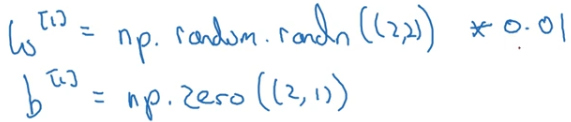 W^[1] = np.random.randn((2,2)) * 0.01
b^[1] = np.zero((2,1))